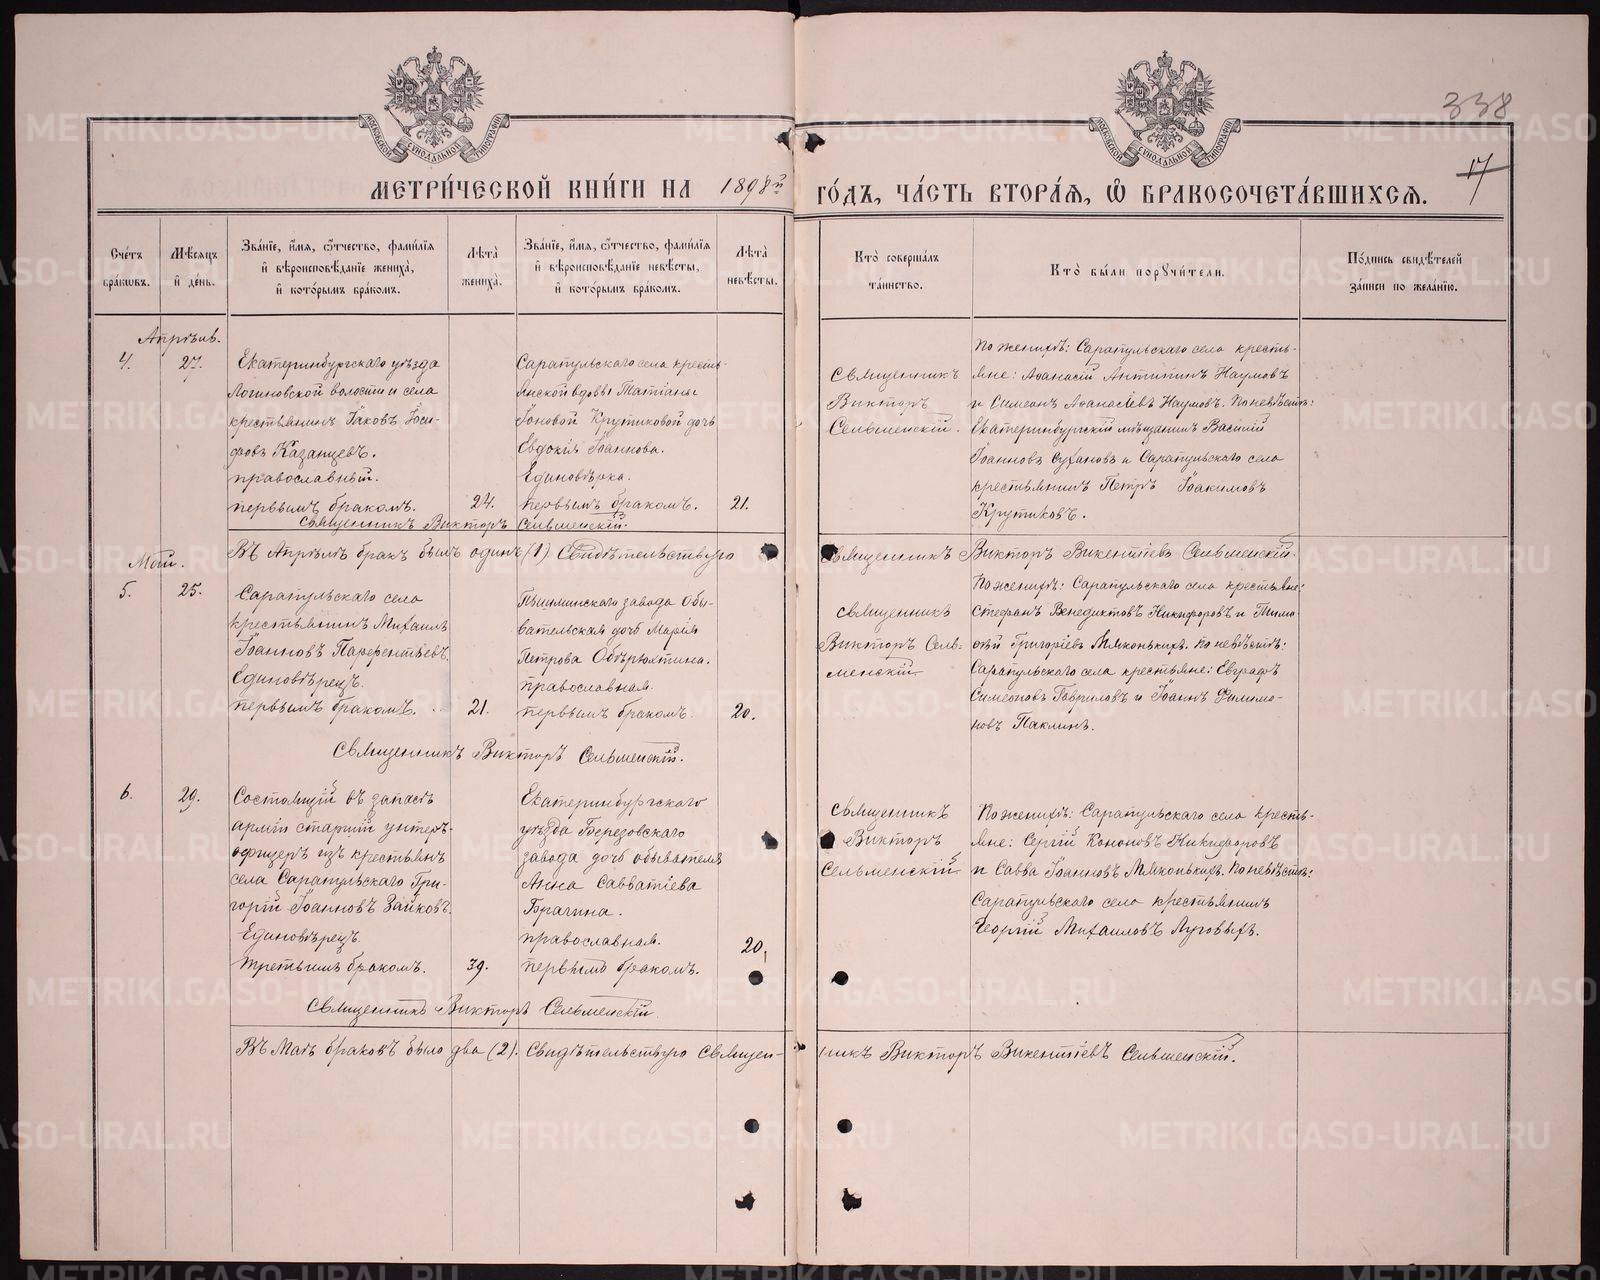 338
17
МОСКОВСКОЙ СѴНОДАЛЬНОЙ ТИПОГРАФІИ
МОСКОВСКОЙ СѴНОДАЛЬНОЙ ТИПОГРАФІИ
МЕТРИ́ЧЕСКОЙ КНИ́ГИ НА 1898й ГО́ДЪ, ЧА́СТЬ ВТОРА́Я, Ѿ БРАКОСОЧЕТА́ВШИХСЯ.
Сче́тъ бра́кѡвъ.
Мѣ́сяцъ и́ де́нь.
Зва́нїе, и́мя, ѻ́тчество, фами́лїя и́ вѣроисповѣ́данїе жениха̀, и́ кото́рымъ бра́комъ.
Лѣ́та жениха̀.
Зва́нїе, и́мя, ѻ́тчество, фами́лїя и́ вѣроисповѣ́данїе невѣ́сты, и́ кото́рымъ бра́комъ.
Лѣ́та невѣ́сты.
Кто̀ соверша́лъ та́инство.
Кто̀ бы́ли порꙋчи́тели.
По́дпись свидѣ́телей за́писи по жела́нїю.
Апрѣль.
4.
27.
Екатеринбургскаго уѣзда
Логиновской волости и села
крестьянинъ Іаковъ Іоси-
фовъ Казанцевъ.
православный.
первымъ бракомъ.
24.
Сарапульскаго села кресть-
янской вдовы Татіаны
Іоновой Крутиковой дочь
Евдокія Іоаннова.
Единовѣрка.
первымъ бракомъ.
21.
Священникъ
Викторъ
Сельменскій.
По женихѣ: Сарапульскаго села кресть-
яне: Аѳанасій Антипинъ Наумовъ
и Симеонъ Аѳанасіевъ Наумовъ. По невѣстѣ:
Екатеринбургскій мѣщанинъ Василій
Іоанновъ Сухановъ и Сарапульскаго села
крестьянинъ Петръ Іоакимовъ
Крутиковъ.
Священникъ Викторъ Сельменскій.
Въ Апрѣлѣ бракъ былъ одинъ (1) Свидѣтельствую священникъ Викторъ Викентіевъ Сельменскій.
Май.
5.
25.
Сарапульскаго села
крестьянинъ Михаилъ
Іоанновъ Парфентьевъ.
Единовѣрецъ.
первымъ бракомъ.
21.
Пышминскаго завода обы-
вательская дочь Марія
Петрова Обѣрюхтина.
православная.
первымъ бракомъ.
20.
священникъ
Викторъ Сель-
менскій
По женихѣ: Сарапульскаго села крестьяне:
Стефанъ Венедиктовъ Никифоровъ и Тимо-
ѳей Григоріевъ Мяконькихъ. По невѣстѣ:
Сарапульскаго села крестьяне: Евграфъ
Симеоновъ Гавриловъ и Іоаннъ Филимо-
новъ Паклинъ.
Священникъ Викторъ Сельменскій.
6.
29.
Состоящій въ запасѣ
арміи старшій унтеръ-
офицеръ изъ крестьянъ
села Сарапульскаго Гри-
горій Іоанновъ Зайковъ.
Единовѣрецъ.
третьимъ бракомъ.
39.
Екатеринбургскаго
уѣзда Березовскаго
завода дочь обывателя
Анна Савватіева
Брагина.
православная.
первымъ бракомъ.
20.
Священникъ
Викторъ
Сельменскій
По женихѣ: Сарапульскаго села кресть-
яне: Сергій Кононовъ Никифоровъ
и Савва Іоанновъ Мяконькихъ. По невѣстѣ:
Сарапульскаго села крестьянинъ
Георгій Михаиловъ Луговыхъ.
Священникъ Викторъ Сельменскій
Въ Маѣ браковъ было два (2). Свидѣтельствую Священникъ Викторъ Викентіевъ Сельменскій.
METRIKI.GASO-URAL.RU